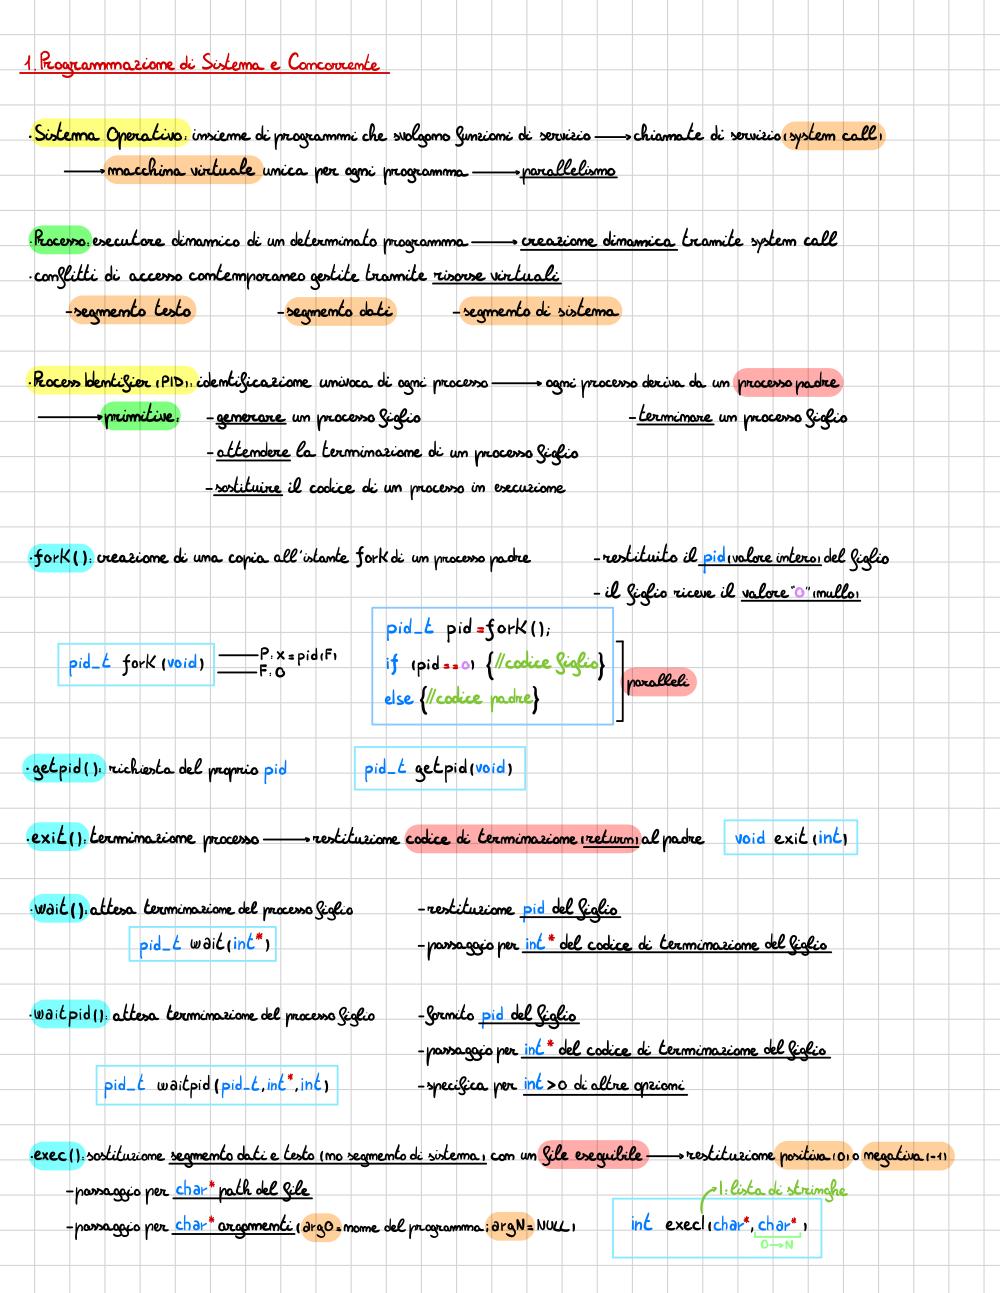 1. Programmazione di Sistema e Concorrente
· Sistema Operativo: insieme di programmi che svolgono funzioni di servizio ⟶ chiamate di servizio (system call)
⟶ macchina virtuale unica per ogni programma ⟶ parallelismo
· Processo: esecutore dinamico di un determinato programma ⟶ creazione dinamica tramite system call
· conflitti di accesso contemporaneo gestite tramite risorse virtuali
- segmento testo - segmento dati - segmento di sistema
· Process Identifier (PID): identificazione univoca di ogni processo ⟶ ogni processo deriva da un processo padre
⟶ primitive: - generare un processo figlio - terminare un processo figlio
- attendere la terminazione di un processo figlio
- sostituire il codice di un processo in esecuzione
· fork(): creazione di una copia all'istante fork di un processo padre - restituito il pid (valore intero) del figlio
- il figlio riceve il valore "0" (nullo)
pid_t fork(void) P: x=pid(F)
F: 0
pid_t pid=fork();
if (pid==0) {//codice figlio}
else {//codice padre}
paralleli
· getpid(): richiesta del proprio pid pid_t getpid(void)
· exit(): terminazione processo ⟶ restituzione codice di terminazione (return) al padre void exit(int)
· wait(): attesa terminazione del processo figlio - restituzione pid del figlio
pid_t wait(int*) - passaggio per int* del codice di terminazione del figlio
· waitpid(): attesa terminazione del processo figlio - fornito pid del figlio
- passaggio per int* del codice di terminazione del figlio
pid_t waitpid(pid_t,int*,int) - specifica per int>0 di altre opzioni
· exec(): sostituzione segmento dati e testo (no segmento di sistema) con un file eseguibile ⟶ restituzione positiva (0) o negativa (-1)
- passaggio per char* path del file l: lista di stringhe
- passaggio per char* argomenti (arg0=nome del programma; argN=NULL) int execl(char*,char*)
0→N